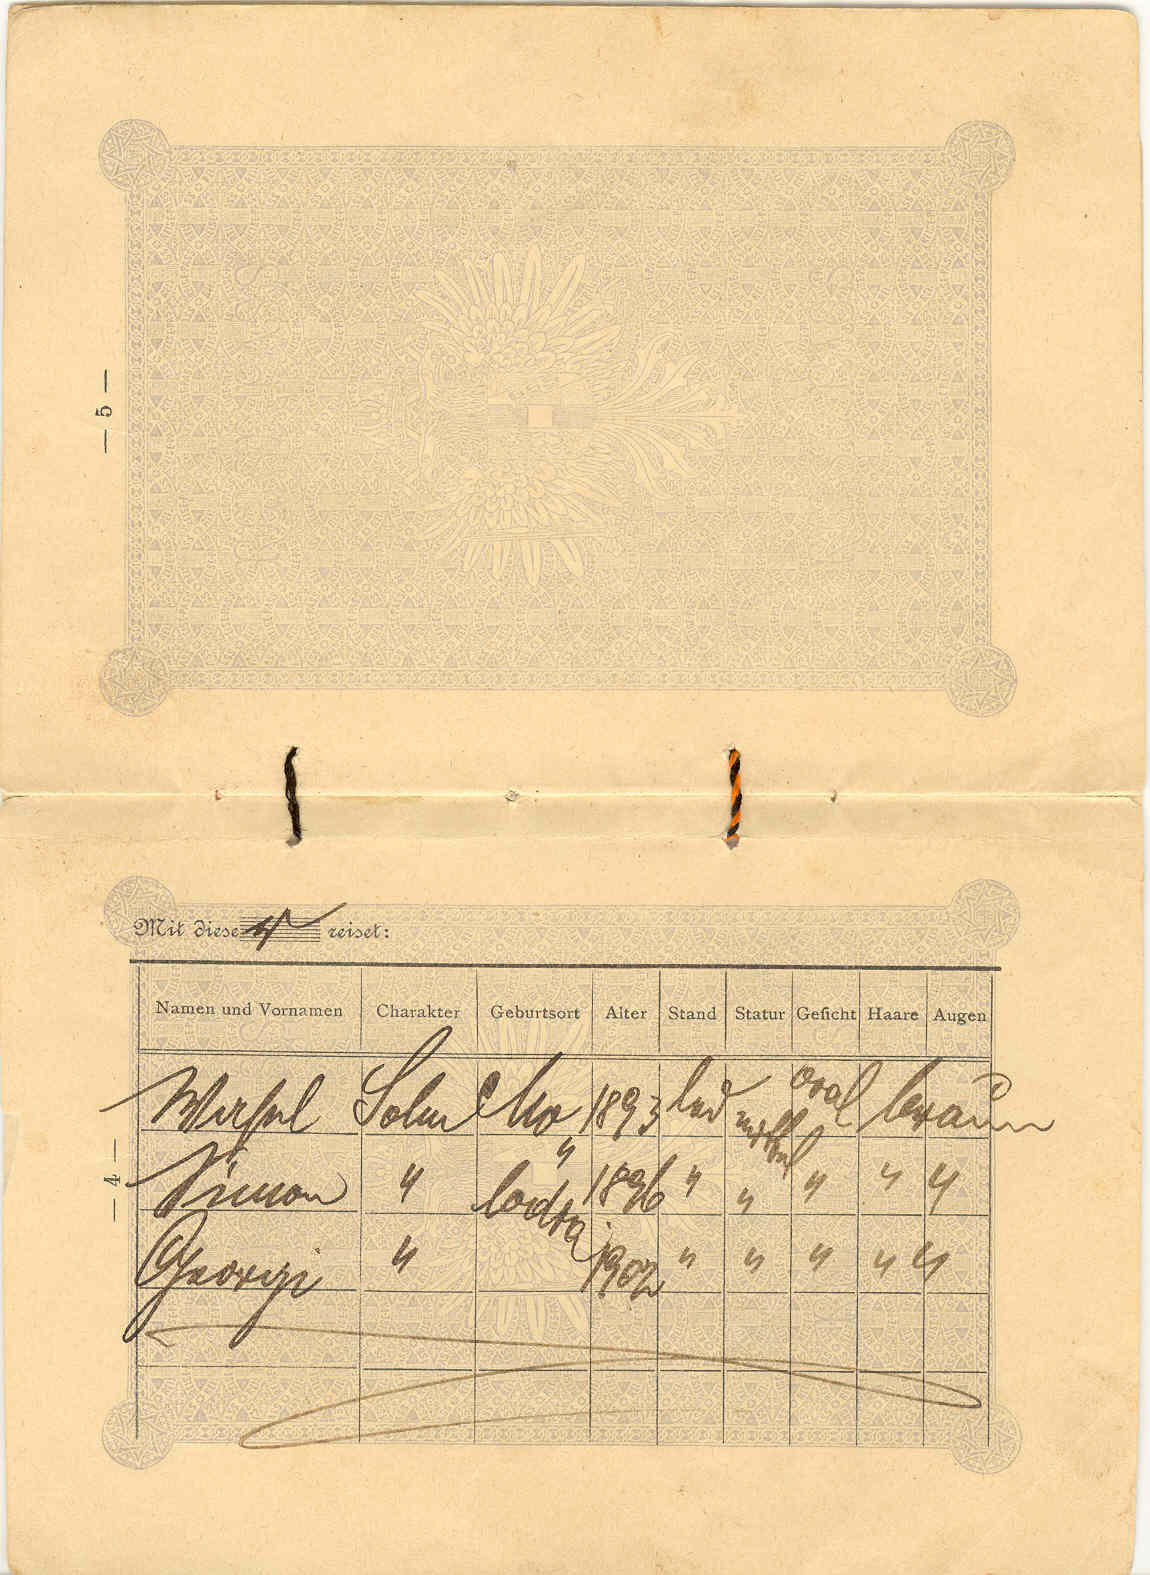 — 5 —
Mit diese reiset:
Namen und Vornamen Charakter Geburtsort Alter Stand Statur Gesicht Haare Augen
Sohn 1893 led mittel oval braun
Simon " " 1896 " " " " "
Georgi " 1902 " " " " "
— 4 —